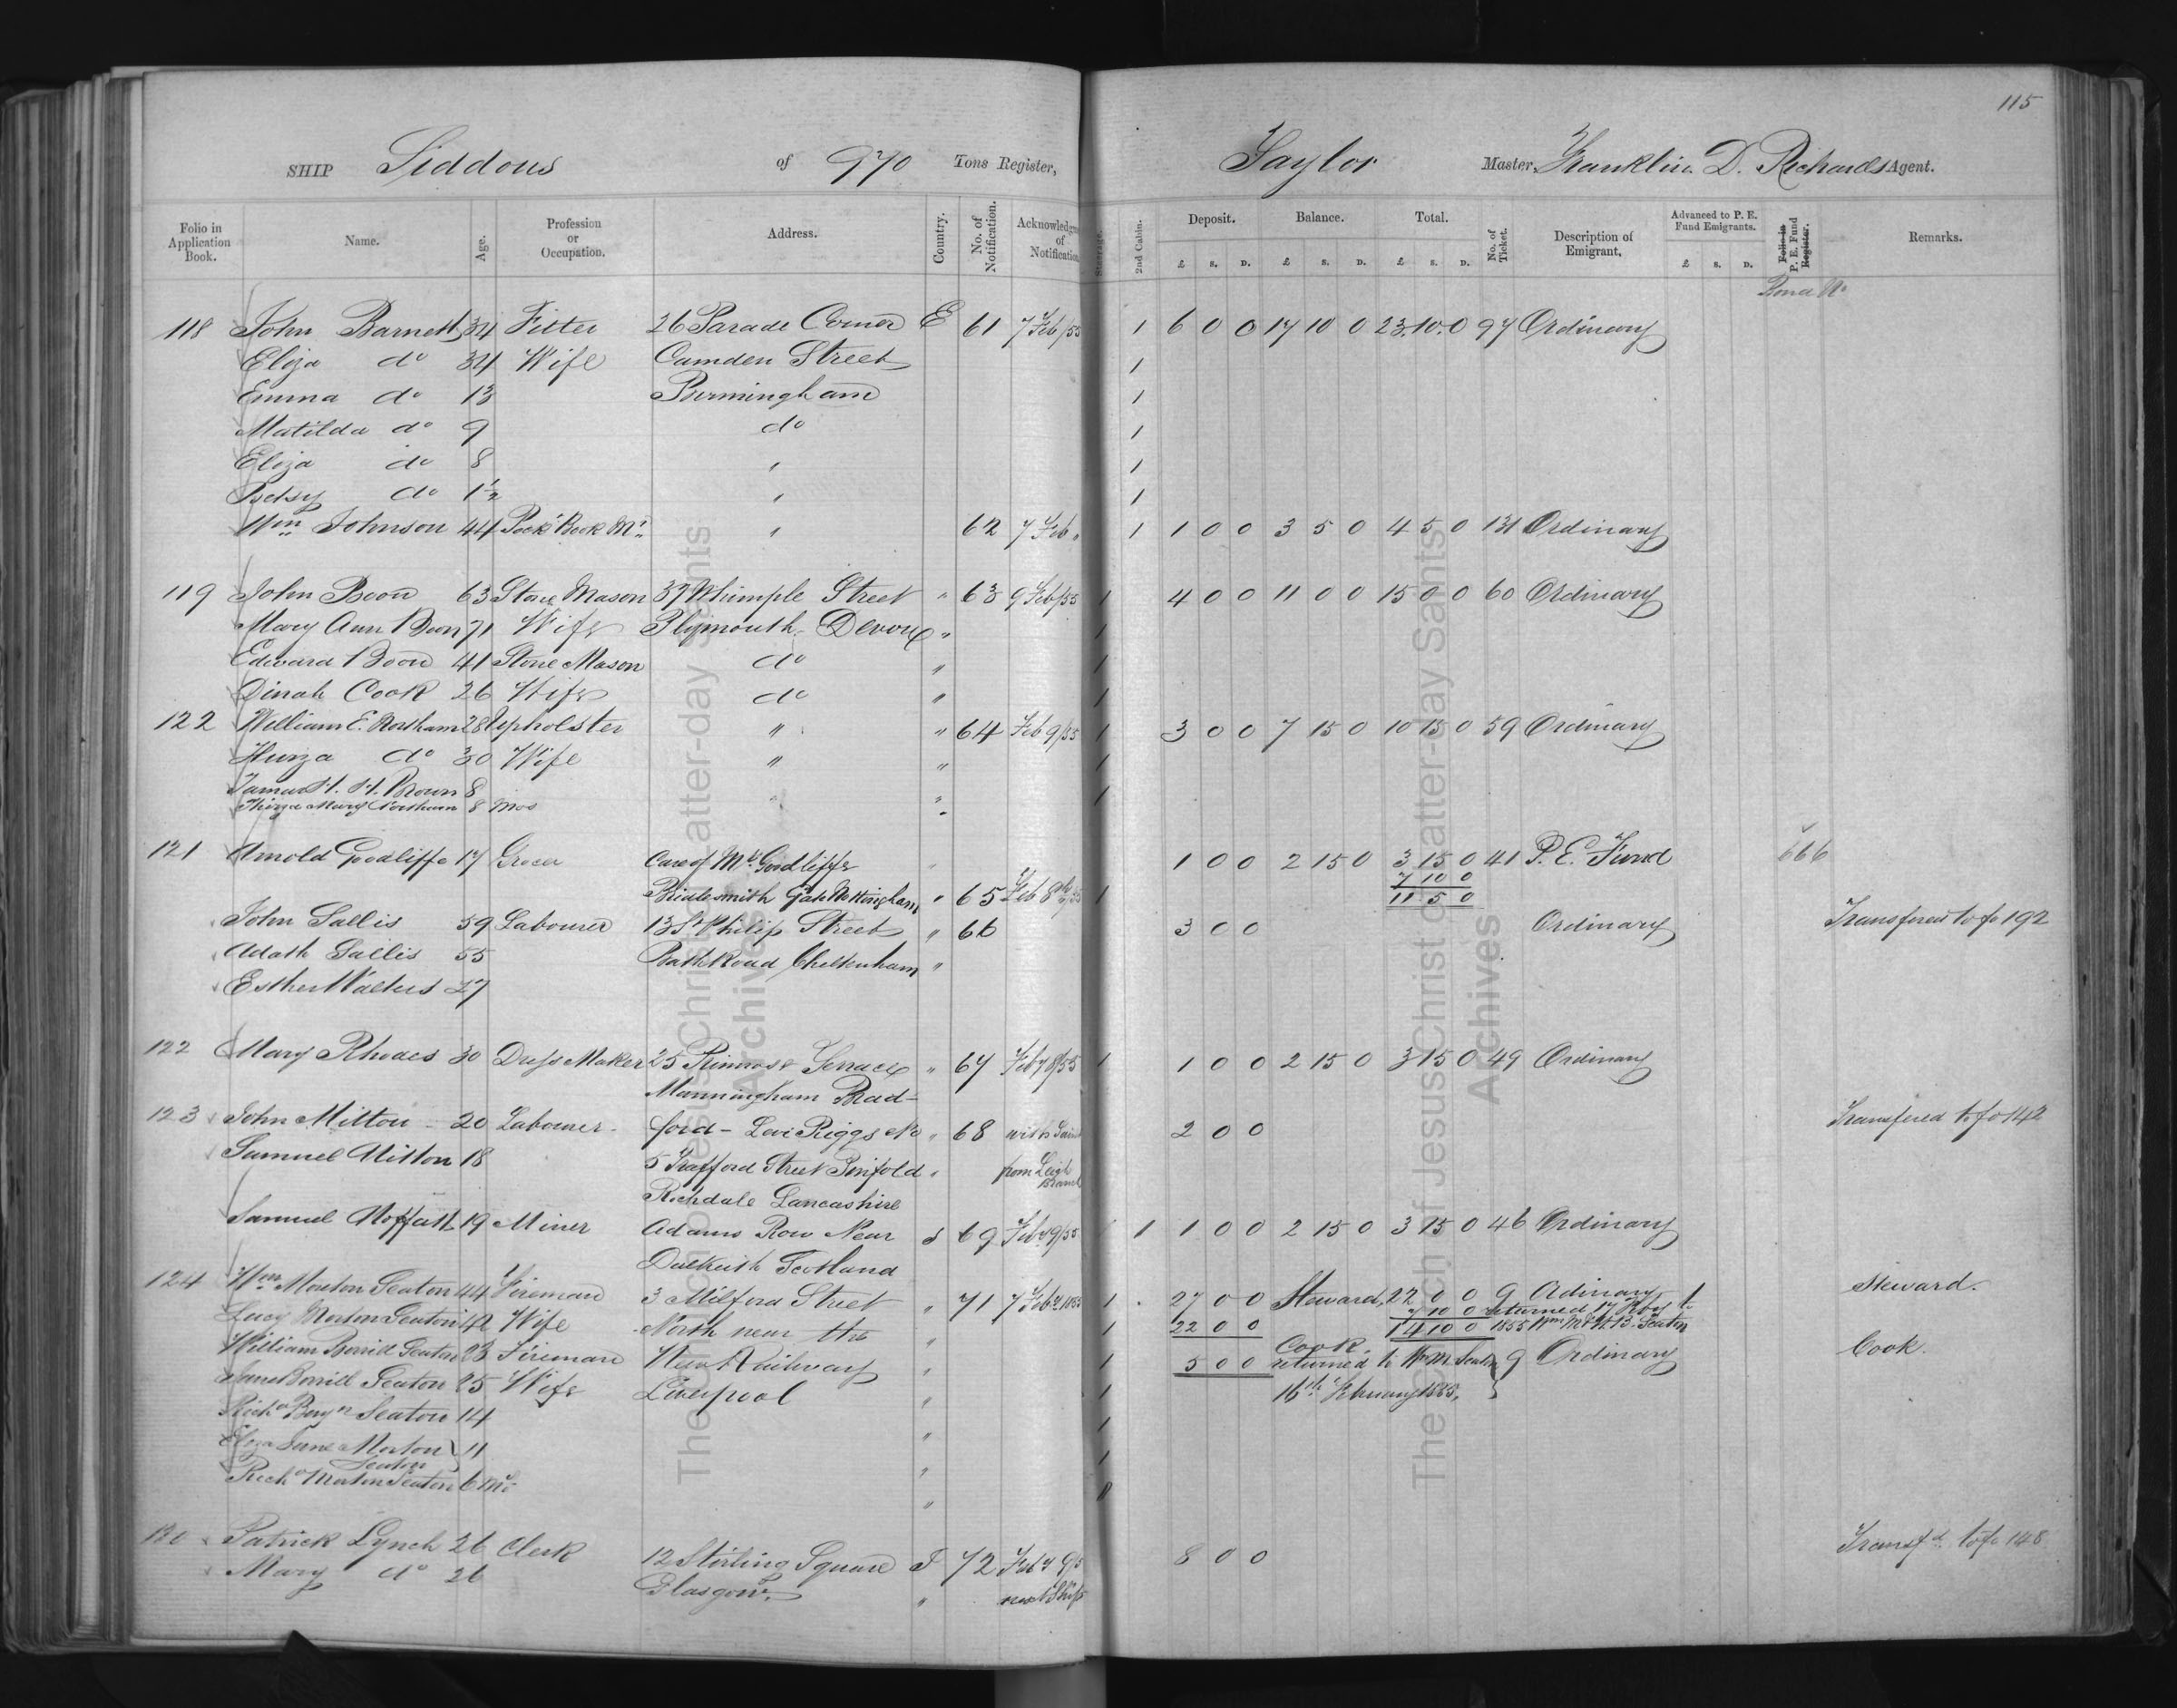 115
SHIP Siddons of 970 Tons Register, Taylor Master, Franklin D. Richards Agent.
Folio in Application Book. Name. Age. Profession or Occupation. Address. Country. No. of Notification. Acknowledgm of Notification Steerage. 2nd Cabin. Deposit. £ S. D. Balance. £ S. D. Total. £ S. D. No. of Ticket. Description of Emigrant. Advanced to P. E. Fund Emigrants. £ S. D. Folio in P. E. Fund Register. Remarks.
Bond No
118 John Barnett 34 Fitter 26 Parade Corner E 61 7 Feb/55 1 6 0 0 17 10 0 23.10.0 97 Ordinary
Eliza do 34 Wife Camden Street 1
Emma do 13 Birmingham 1
Matilda do 9 do 1
Eliza do 8 " 1
Betsy do 1½ " 1
Wm Johnson 44 Pock Book Mr " 62 7 Feb " 1 1 0 0 3 5 0 4 5 0 131 Ordinary
119 John Boon 63 Stone Mason 37 Whimple Street " 63 9 Feb/55 1 4 0 0 11 0 0 15 0 0 60 Ordinary
Mary Ann Boon 71 Wife Plymouth Devon " 1
Edward Boon 41 Stone Mason do " 1
Dinah Cook 26 Wife do " 1
122 William E. Northam 28 Upholster " " 64 Feb 9/55 1 3 0 0 7 15 0 10 15 0 59 Ordinary
do 30 Wife " " 1
H. H. Brown 8 " " 1
Thirza Mary Northam 8 mos "
121 Arnold Goodliffe 17 Grocer Care of Mr Goodliffe 1 0 0 2 15 0 3 15 0 41 P. E. Fund 666
7 10 0
Bridlesmith Gate Nottingham " 65 Feb 8 1 11 5 0
John Sallis 59 Labourer 13 St Philip Street " 66 3 0 0 Ordinary Transfered to fo 192
Adath Sallis 55 Bath Road Cheltenham "
Esther Walters 27
122 Mary Rhodes 30 Dress Maker 25 Primrose Terrace " 67 Feb 7 8/55 1 1 0 0 2 15 0 3 15 0 49 Ordinary
Manningham Brad-
123 John Mitton 20 Labourer ford - Levi Riggs No " 68 with 2 0 0 Transfered to fo 142
Samuel Mitton 18 5 Trafford Street Pinfold " from Leigh Branch
Rochdale Lancashire
Samuel Moffatt 19 Miner Adams Row Near S 69 Feb 7 9/55 1 1 0 0 2 15 0 3 15 0 46 Ordinary
Dalkeith Scotland
124 Wm Morton Seaton 44 Fireman 3 Milford Street " 71 7 Feby 1855 1 27 0 0 Steward, 22 0 0 9 Ordinary Steward.
7 10 0 returned 17 Feby to
Lucy Morton Seaton 42 Wife North near the " 1 22 0 0 14 10 0 1855 Wm M & W. B. Seaton
William Borrill Seaton 23 Fireman New Railway " 1 5 0 0 Cook. returned to Wm M Seaton 9 Ordinary Cook.
Jane Borrill Seaton 25 Wife Liverpool " 1 16th February 1855,
Richd Benjn Seaton 14 " 1
Eliza Jane Morton Seaton 11 " 1
Richd Morton Seaton 6 Mo "
130 Patrick Lynch 26 Clerk 12 Stirling Square I 72 Feb 7 9/5 8 0 0 Transfd to fo 148
Mary do 26 Glasgow. " next Ship
The Church of Jesus Christ of Latter-day Saints
Archives
The Church of Jesus Christ of Latter-day Saints
Archives